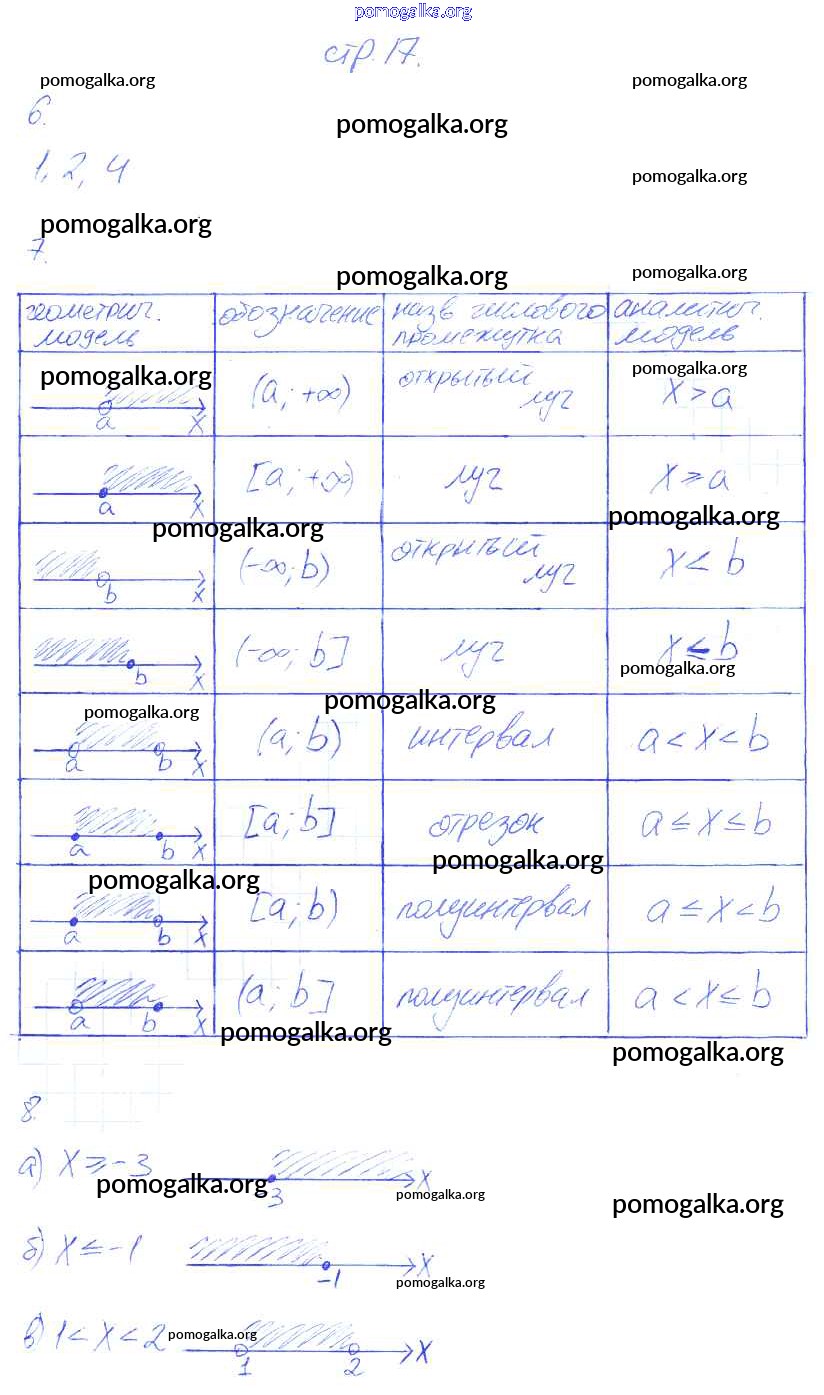 pomogalka.org
стр. 17.
pomogalka.org pomogalka.org
6.
pomogalka.org
1, 2, 4
pomogalka.org
pomogalka.org
7.
pomogalka.org pomogalka.org
геометрич. модель обозначение назв числового промежутка аналитич. модель
pomogalka.org pomogalka.org
a X (a; +∞) открытый луч X > a
a X [a; +∞) луч X ≥ a
pomogalka.org pomogalka.org
b X (-∞; b) открытый луч X < b
b X (-∞; b] луч X ≤ b
pomogalka.org
pomogalka.org pomogalka.org
a b X (a; b) интервал a < X < b
a b X [a; b] отрезок a ≤ X ≤ b
pomogalka.org pomogalka.org
a b X [a; b) полуинтервал a ≤ X < b
a b X (a; b] полуинтервал a < X ≤ b
pomogalka.org pomogalka.org
8.
а) X ≥ -3 3 X
pomogalka.org pomogalka.org pomogalka.org
б) X ≤ -1 -1 X
pomogalka.org
в) 1 < X < 2 1 2 X
pomogalka.org